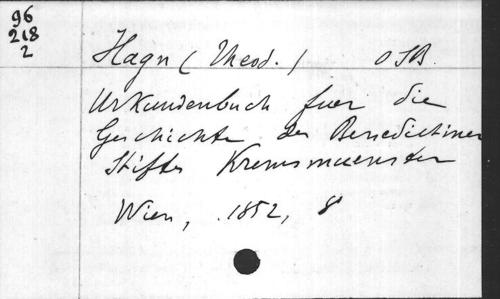 96
218
2
Hagn (Theod.) OSB.
Urkundenbuch fuer die
Geschichte des Benedictiner
Stiftes Kremsmuenster
Wien, 1852, 8°